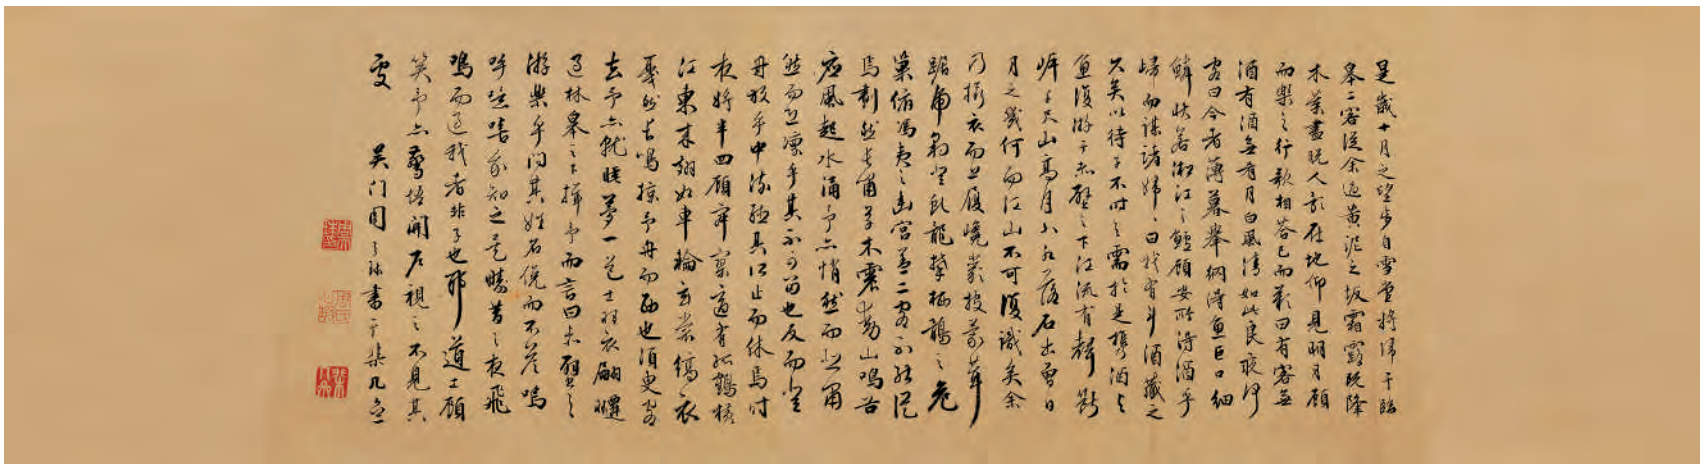 是歲十月之望步自雪堂將歸于臨
皋二客從余過黃泥之坂霜露既降
木葉盡脫人影在地仰見明月顧
而樂之行歌相答已而歎曰有客無
酒有酒無肴月白風清如此良夜何
客曰今者薄暮舉網得魚巨口細
鱗狀若淞江之鱸顧安所得酒乎
歸而謀諸婦婦曰我有斗酒藏之
久矣以待子不時之需於是攜酒與
魚復游于赤壁之下江流有聲斷
岸千尺山高月小水落石出曾日
月之幾何而江山不可復識矣余
乃攝衣而上履巉巖披蒙茸
踞虎豹登虬龍攀栖鶻之危
巢俯馮夷之幽宮蓋二客不能從
焉劃然長嘯草木震動山鳴谷
應風起水涌予亦悄然而悲肅
然而恐凜乎其不可留也反而登
舟放乎中流聽其所止而休焉時
夜將半四顧寂寥適有孤鶴橫
江東來翅如車輪玄裳縞衣
戛然長鳴掠予舟而西也須臾客
去予亦就睡夢一道士羽衣翩躚
過林皋之下揖予而言曰赤壁之
游樂乎問其姓名俛而不答嗚
呼噫嘻我知之矣疇昔之夜飛
鳴而過我者非子也耶道士顧
笑予亦驚悟開戶視之不見其
處 吳門周之 書于 几